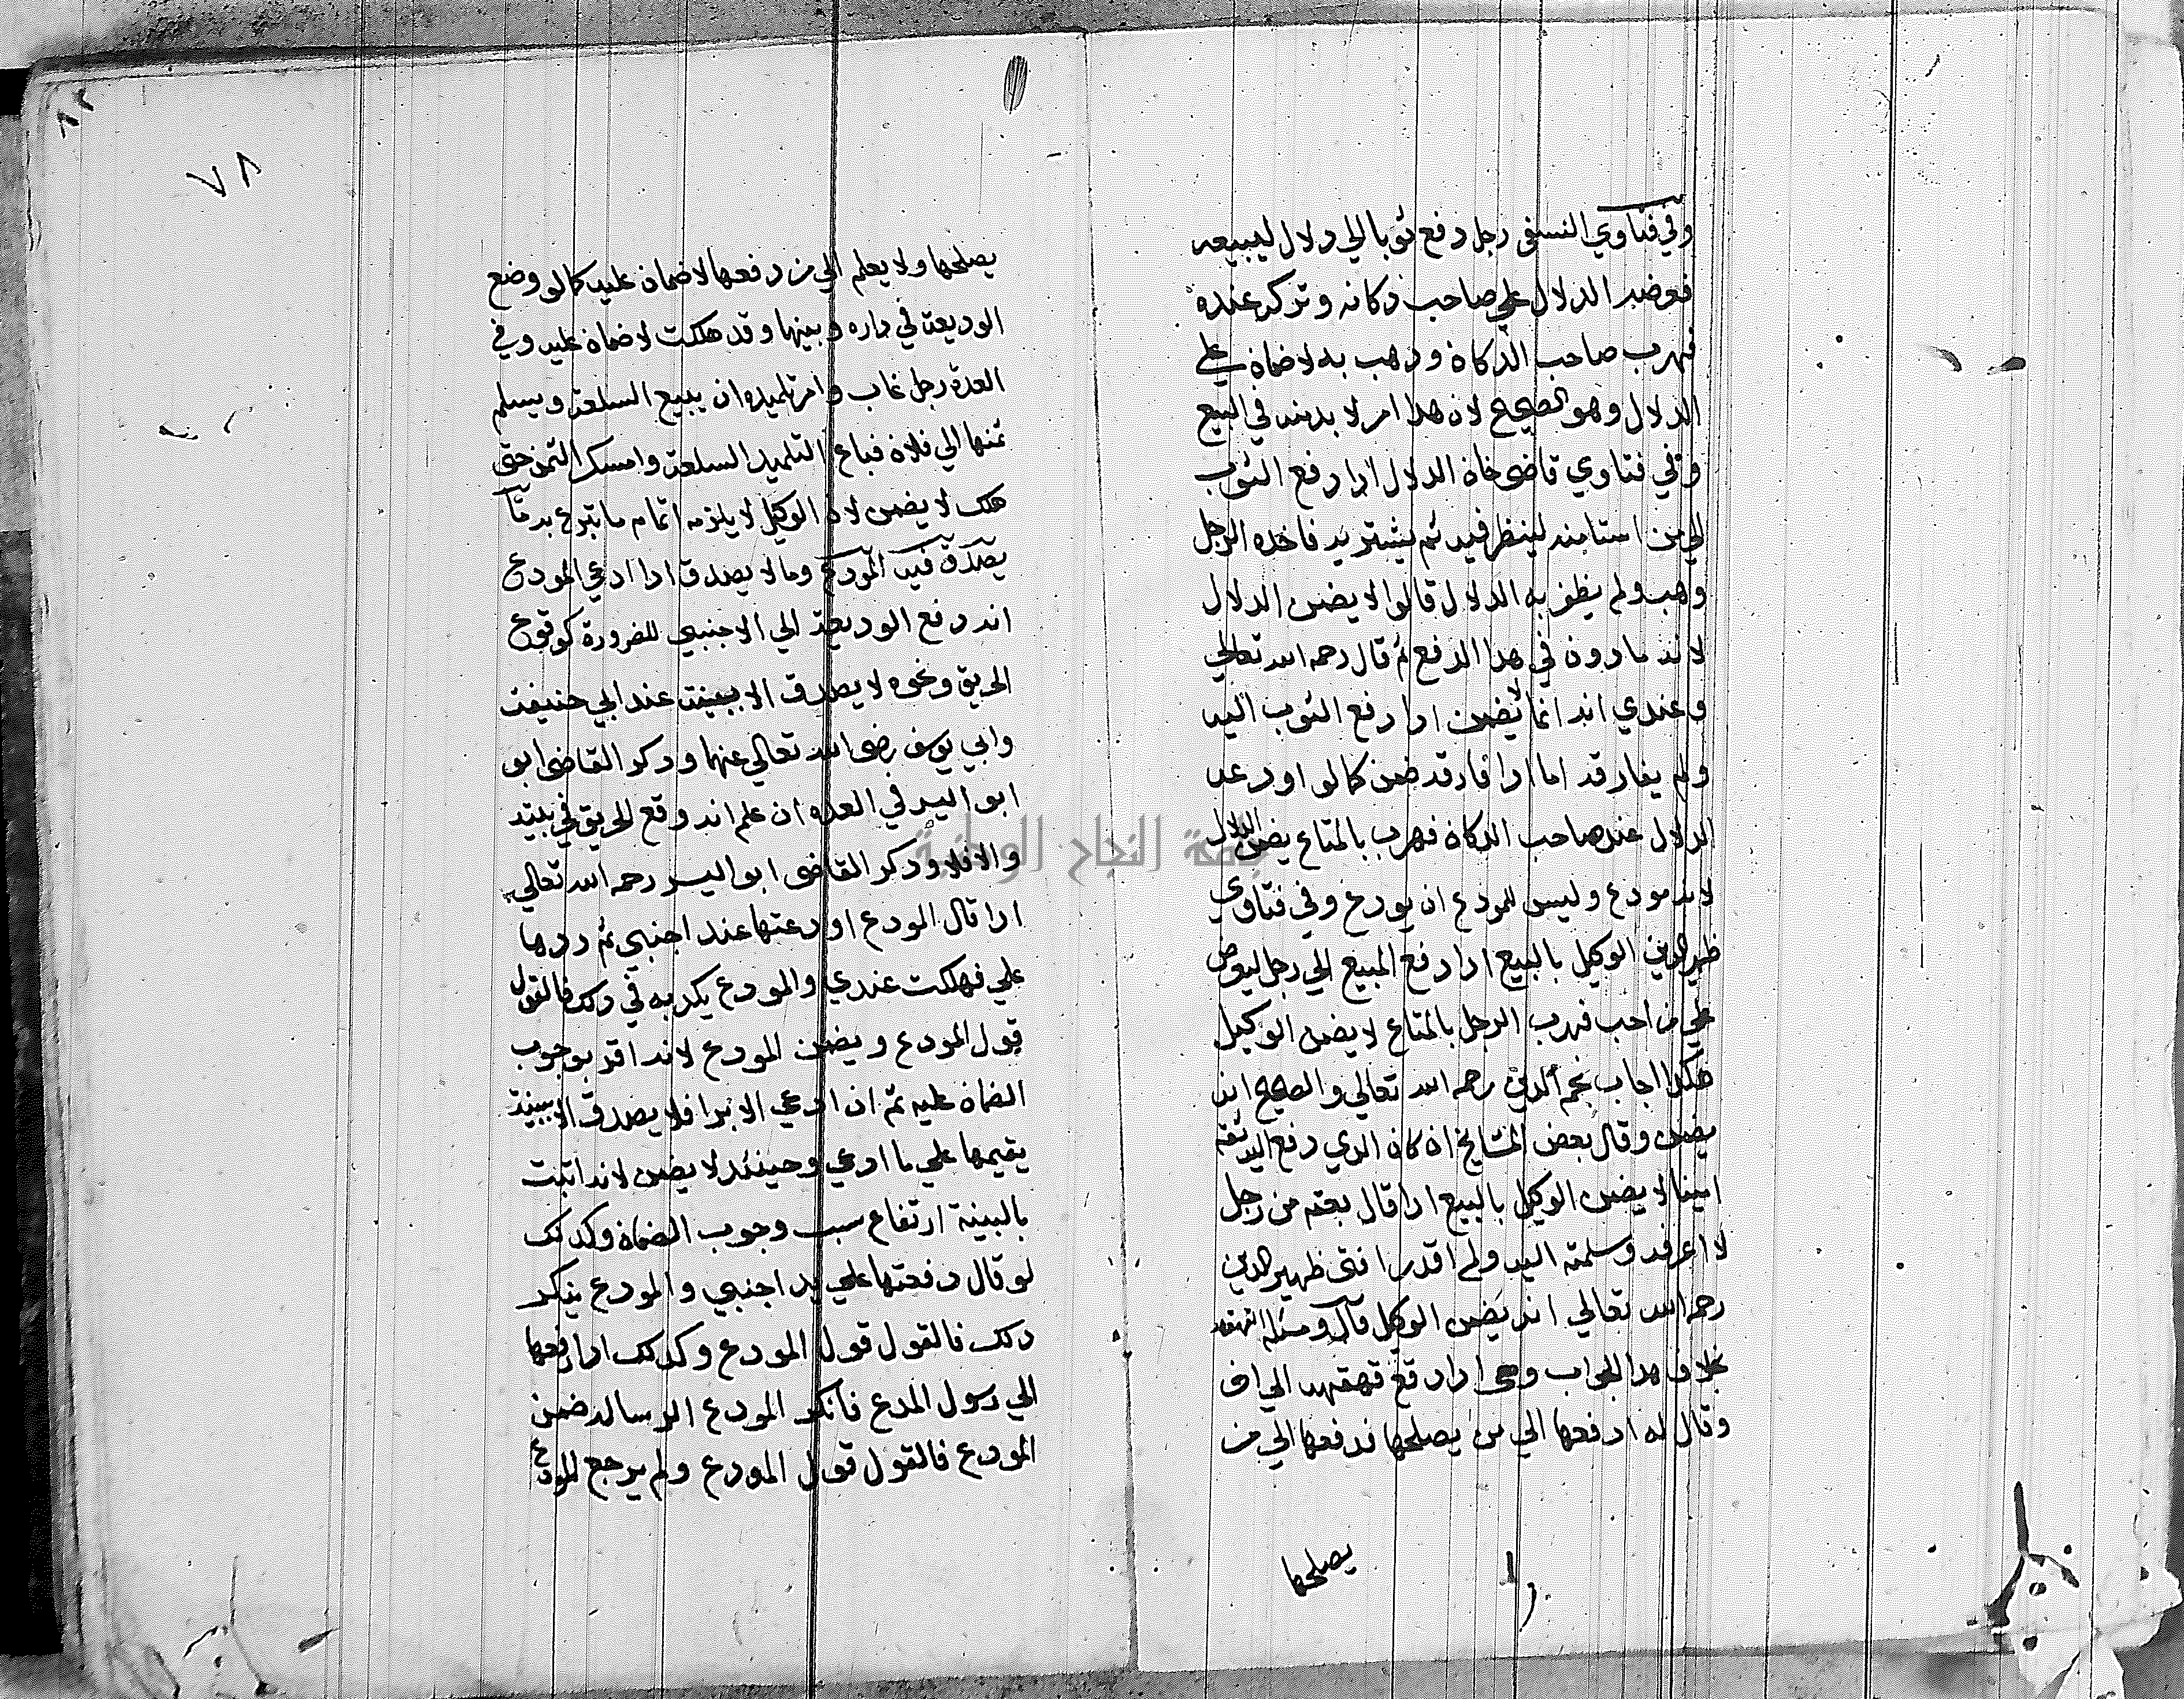 وفي فتاوي النسفي رجل دفع ثوبا الي دلال ليبيعه
فعرضه الدلال علي صاحب دكانه وتركه عنده
فهرب صاحب الدكان وذهب به لا ضمان علي
الدلال وهو الصحيح لان هذا امر لا بد منه في البيع
وفي فتاوي قاضي خان الدلال اذا دفع الثوب
الي من استامنه لينظر فيه ثم يشتريه فاخذه الرجل
وهب ولم يظفر به الدلال قالوا لا يضمن الدلال
لانه مادون في هذا الدفع ثم قال رحمه الله تعالي
وعندي انه انما لا يضمن اذا دفع الثوب اليه
ولم يفارقه اما اذا فارقه ضمن كما لو اودعه
الدلال عند صاحب الدكان فهرب بالمتاع يضمن الدلال
لانه مودع وليس للمودع ان يودع وفي فتاوي
ظهير الدين الوكيل بالبيع اذا دفع المبيع الي رجل ليعرض
علي من احب فهرب الرجل بالمتاع لا يضمن الوكيل
هكذا اجاب نجم الدين رحمه الله تعالي والصحيح انه
يضمن وقال بعض المشايخ ان كان الذي دفع اليه ثقة
امينا لا يضمن الوكيل بالبيع اذا قال بعته من رجل
لا اعرفه وسلمته اليه ولم اقدر افتي ظهير الدين
رحمه الله تعالي انه يضمن الوكيل قال ومسئلة القمقمه
بخلاف هذا الجواب وهي اذا دفع قمقمه الي
وقال له ادفعها الي من يصلحها فدفعها الي من
يصلحها
٧٨
يصلحها ولا يعلم الي من دفعها لا ضمان عليه كما لو وضع
الوديعة في داره وبينها وقد هلكت لا ضمان عليه وفي
العدة رجل غاب وامر تلميذه ان يبيع السلعة ويسلم
ثمنها الي فلان فباع التلميذ السلعة وامسك الثمن حتي
هلك لا يضمن لان الوكيل لا يلزمه اتمام ما تبرع به ما
يصدق فيه المودع وما لا يصدق اذا ادعي المودع
انه دفع الوديعة الي الاجنبي للضرورة كوقوع
الحريق ونحوه لا يصدق الا ببينة عند ابي حنيفة
وابي يوسف رضي الله تعالي عنهما وذكر القاضي ابو
ابو اليسر في العده ان علم انه وقع الحريق في بيته
والا فلا وذكر القاضي ابو اليسر رحمه الله تعالي
اذا قال المودع اودعتها عند اجنبي ثم ردها
علي فهلكت عندي والمودع يكذبه في ذلك فالقول
قول المودع ويضمن المودع لانه اقر بوجوب
الضمان عليه ثم ان ادعي الابرا فلا يصدق الا ببينة
يقيمها علي ما ادعي وحينئذ لا يضمن لانه اثبت
بالبينة ارتفاع سبب وجوب الضمان وكذلك
لو قال دفعتها علي يد اجنبي والمودع ينكر
ذلك فالقول قول المودع وكذلك اذا دفعها
الي رسول المدع فانكر المودع الرسالة ضمن
المودع فالقول قول المودع ولم يرجع المودع
جامعة النجاح الوطنية